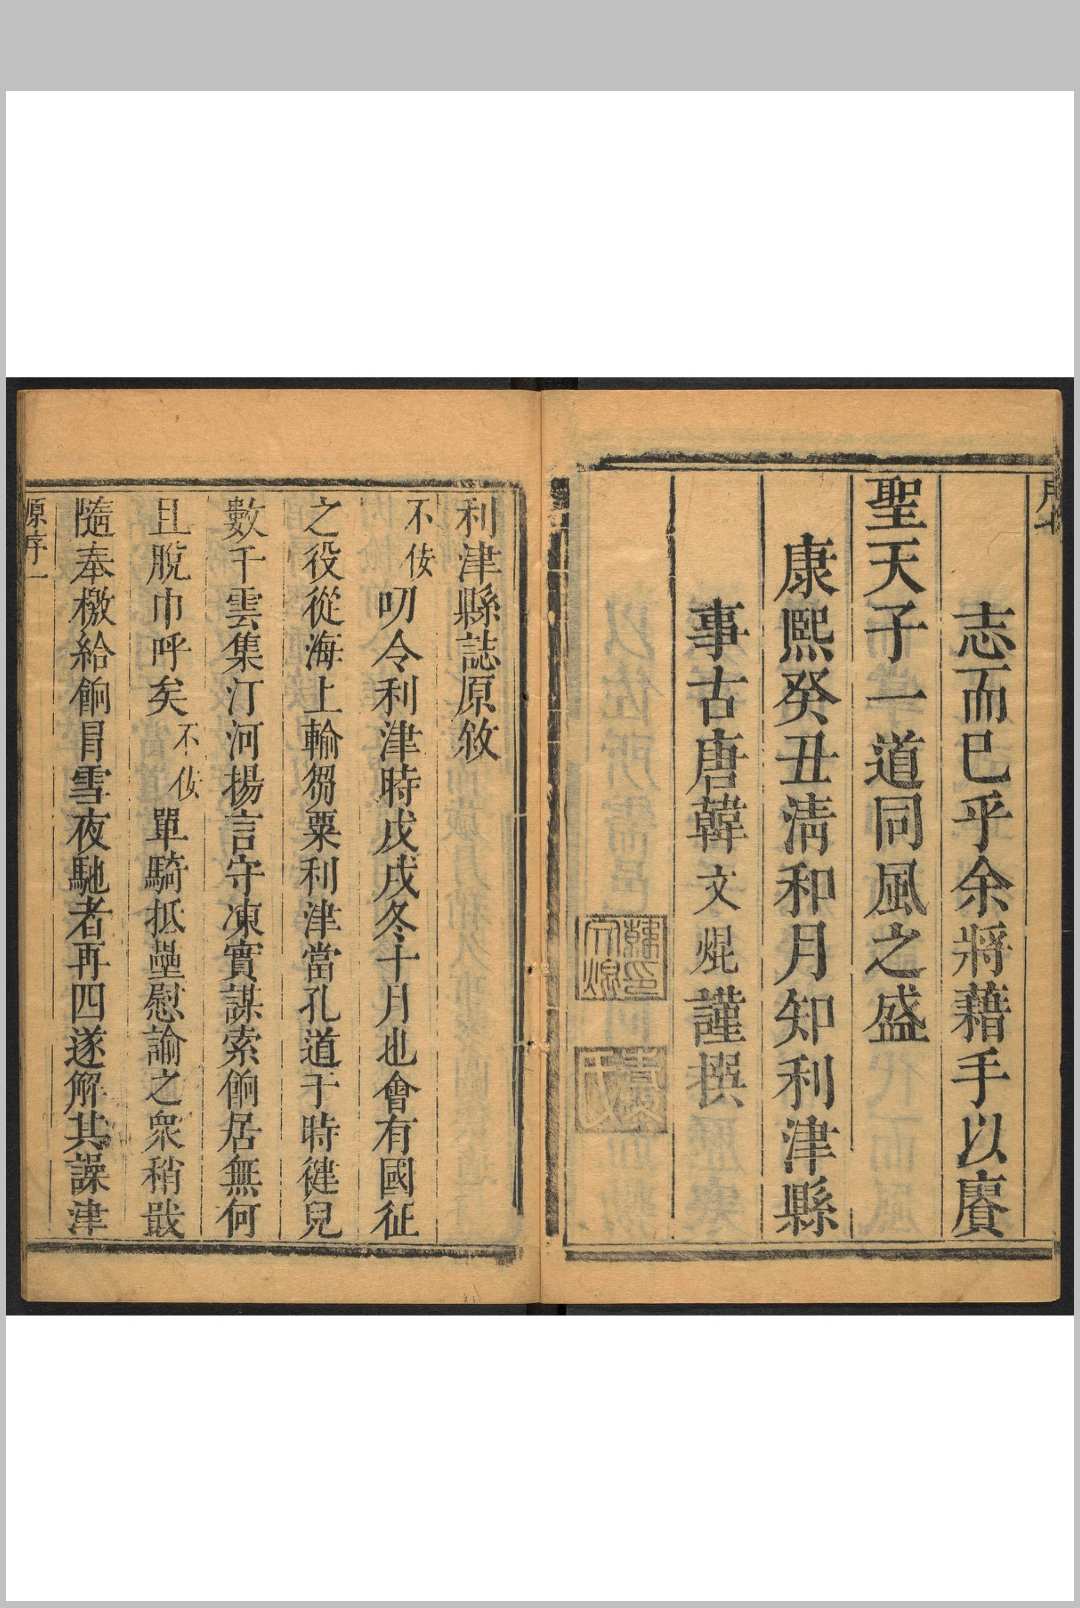 志而已乎余將藉手以賡
聖天子一道同風之盛
康熙癸丑清和月知利津縣
事古唐韓文焜謹撰
韓印文焜
利津縣誌原敘
不佞叨令利津時戊戌冬十月也會有國征
之役從海上輸芻粟利津當孔道于時健兒
數千雲集汀河揚言守凍實謀索餉居無何
且脫巾呼矣不佞單騎抵壘慰諭之衆稍戢
隨奉檄給餉冒雪夜馳者再四遂解其譟津
原序一